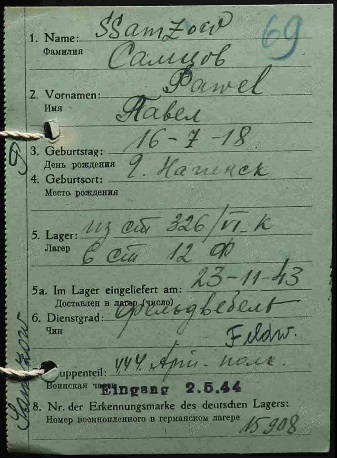 69
1. Name: SSamzow
Фамилия Самцов
Pawel
2. Vornamen:
Имя Павел
3. Geburtstag: 16-7-18
День рождения
4. Geburtsort: г. Нагинск
Место рождения
5. Lager: из ст 326/VI-К
Лагерь в ст 12 Ф
5a. Im Lager eingeliefert am: 23-11-43
Доставлен в лагерь (число)
6. Dienstgrad: фельдвебель
Чин Feldw.
uppenteil: 444. Арт. полк.
Воинская час
Eingang 2.5.44
8. Nr. der Erkennungsmarke des deutschen Lagers:
Номер военнопленного в германском лагере
15908
Samzow